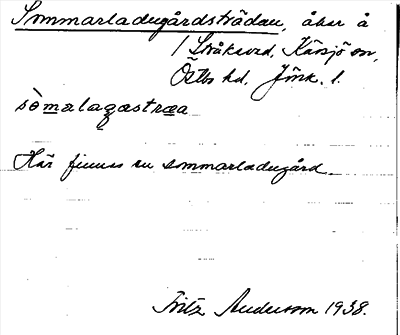 Sommarladugårdsträdan, åker å
1 Stråkeved, Kärsjö sn,
Östbo hd, Jönk. l.
sòmalagastræa
Här finnes en sommarladugård.
Fritz Anderson 1938.